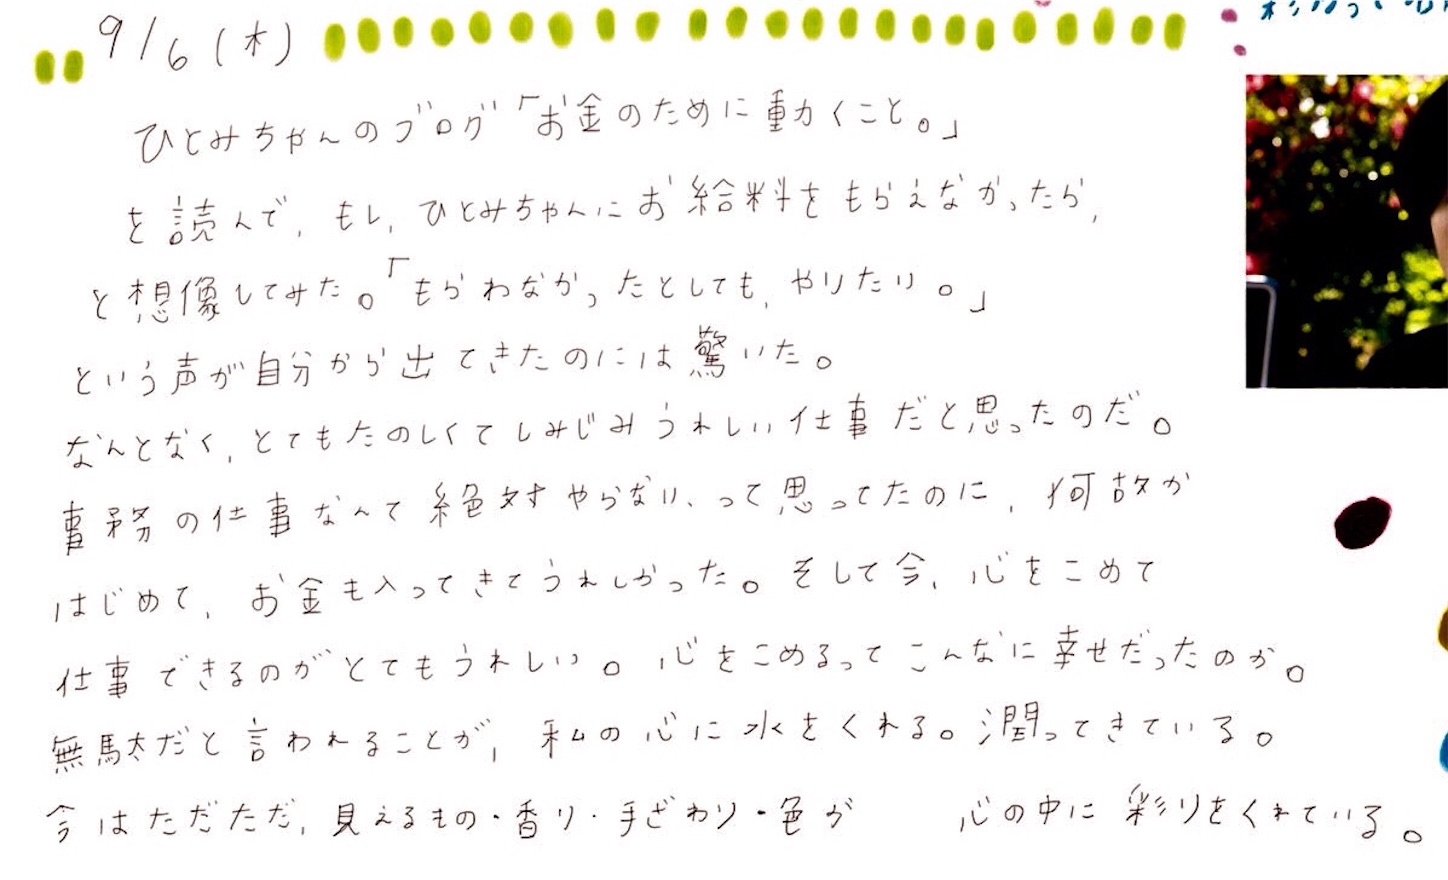 9/6(木)
ひとみちゃんのブログ「お金のために動くこと。」
を読んで、もし、ひとみちゃんにお給料をもらえなかったら、
と想像してみた。「もらわなかったとしても、やりたい。」
という声が自分から出てきたのには驚いた。
なんとなく、とてもたのしくてしみじみうれしい仕事だと思ったのだ。
事務の仕事なんて絶対やらない、って思ってたのに、何故か
はじめて、お金も入ってきてうれしかった。そして今、心をこめて
仕事できるのがとてもうれしい。心をこめるってこんなに幸せだったのか。
無駄だと言われることが、私の心に水をくれる。潤ってきている。
今はただただ、見えるもの・香り・手ざわり・色が 心の中に彩りをくれている。